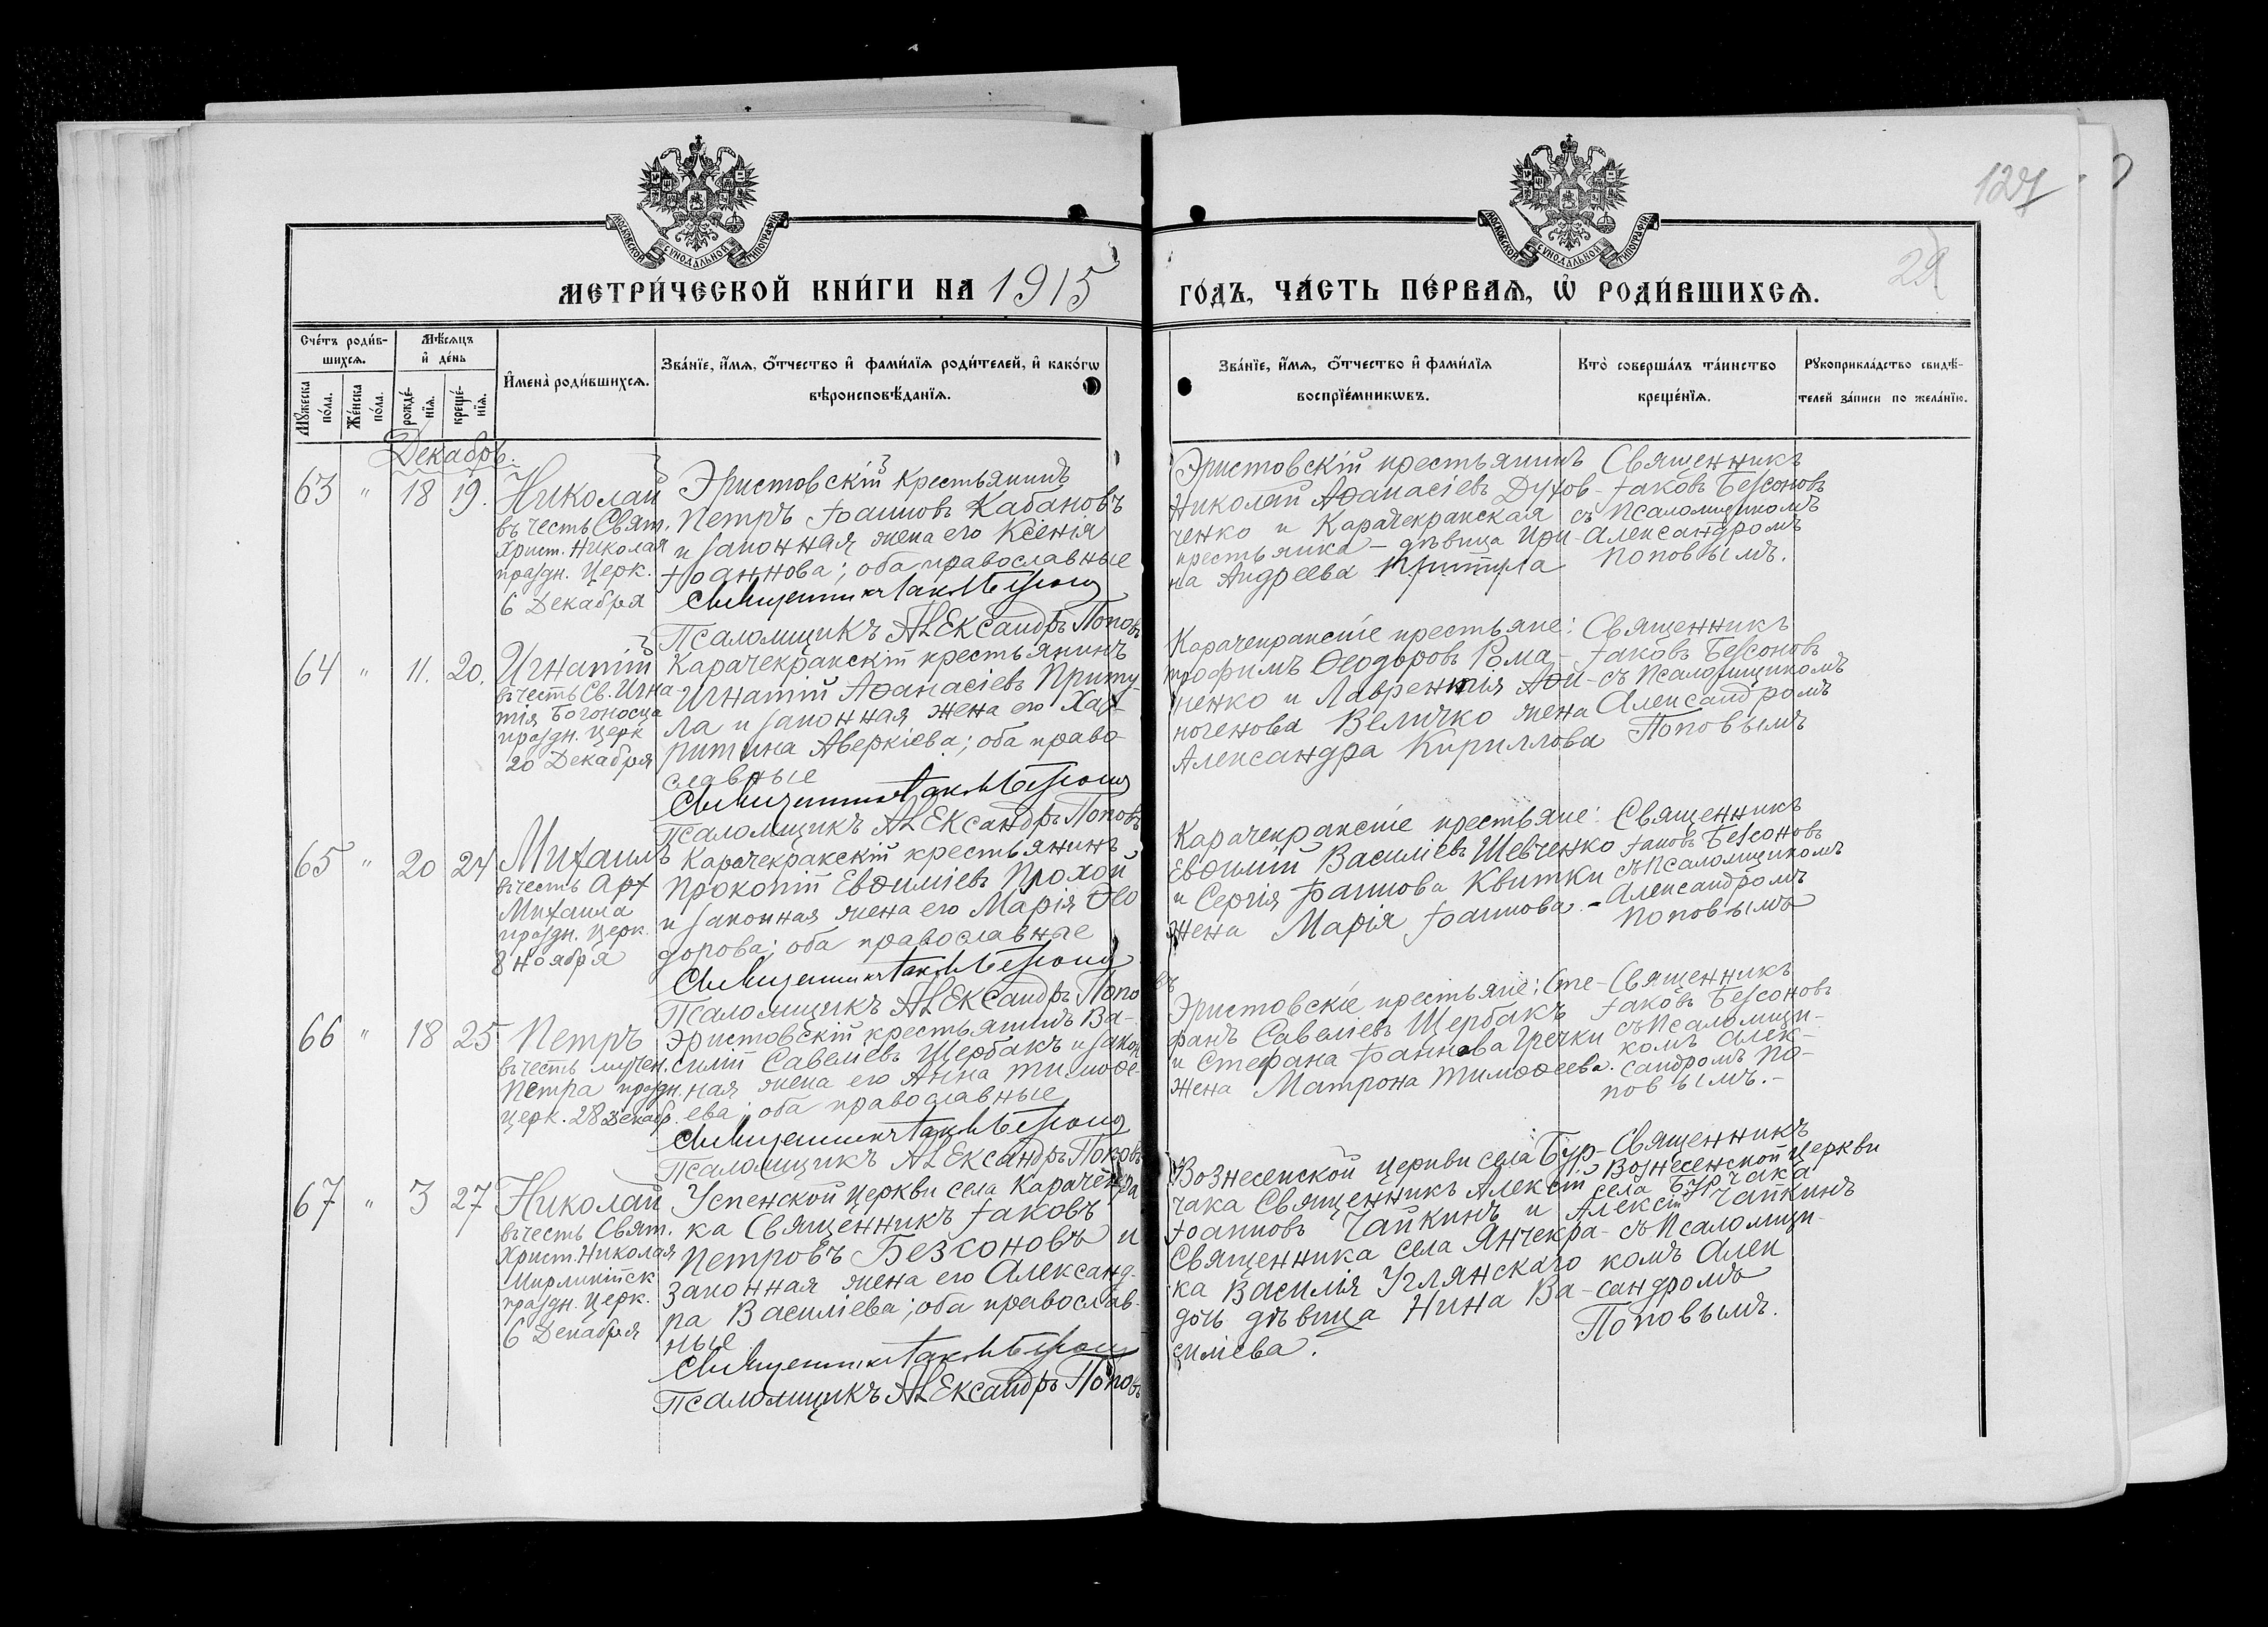 127
29
МОСКОВСКОЙ СѴНОДАЛЬНОЙ ТИПОГРАФІИ
МОСКОВСКОЙ СѴНОДАЛЬНОЙ ТИПОГРАФІИ
МЕТРИ́ЧЕСКОЙ КНИ́ГИ НА 1915
ГО́ДЪ, ЧА́СТЬ ПЕ́РВАѦ, Ѡ РОДИ́ВШИХСѦ.
Сче́тъ роди́в-
шихсѧ.
Мꙋ́жеска
по́ла.
Же́нска
по́ла.
Мѣ́сѧцъ
и҆ де́нь
рожде́-
нїѧ.
креще́-
нїѧ.
И҆мена̀ роди́вшихсѧ.
Зва́нїе, и҆́мѧ, ѻ҆́тчество и҆ фами́лїѧ роди́телей, и҆ како́гѡ
вѣроисповѣ́данїѧ.
Зва́нїе, и҆́мѧ, ѻ҆́тчество и҆ фами́лїѧ
воспрїе́мникѡвъ.
Кто̀ соверша́лъ та́инство
креще́нїѧ.
Рꙋкоприкла́дство свидѣ́-
телей за́писи по жела́нїю.
Декабрь.
63 " 18 19.
Николай
въ честь Свят.
Христ. Николая
праздн. Церк.
6 Декабря
Эристовскій крестьянинъ
Петръ Іоанновъ Кабановъ
и законная жена его Ксенія
Іоаннова; оба православные
Священникъ Іаковъ Безсоновъ
Псаломщикъ Александръ Поповъ
Эристовскій крестьянинъ
Николай Аѳанасіевъ Духов-
ченко и Карачекракская
крестьянка – дѣвица Ири-
на Андреева Притула
Священникъ
Іаковъ Безсоновъ
съ Псаломщикомъ
Александромъ
Поповымъ.
64 " 11. 20.
Игнатій
въ честь Св. Игна-
тія Богоносца
праздн. Церк
20 Декабря
Карачекракскій крестьянинъ
Игнатій Аѳанасіевъ Приту-
ла и законная жена его Хар-
ритина Аверкіева; оба право-
славные
Священникъ Іаковъ Безсоновъ
Псаломщикъ Александръ Поповъ
Карачекракскіе крестьяне:
Трофимъ Ѳеодоровъ Рома-
ненко и Лаврентія Аѳи-
ногенова Величко жена
Александра Кириллова
Священникъ
Іаковъ Безсоновъ
съ Псаломщикомъ
Александромъ
Поповымъ
65 " 20 24
Михаилъ
въ честь Арх
Михаила
праздн. Церк.
8 Ноября
Карачекракскій крестьянинъ
Прокопій Евѳиміевъ Прохой
и законная жена его Марія Ѳео
дорова; оба православные
Священникъ Іаковъ Безсоновъ
Псаломщикъ Александръ Попо
въ
Карачекракскіе крестьяне:
Евѳимій Василіевъ Шевченко
и Сергія Іоаннова Квитки
жена Марія Іоаннова. –
Священникъ
Іаковъ Безсоновъ
съ Псаломщикомъ
Александромъ
Поповымъ
66 " 18 25
Петръ
въ честь мучен.
Петра праздн.
Церк. 28 Декабр.
Эристовскій крестьянинъ Ва-
силій Савеліевъ Щербакъ и закон
ная жена его Анна Тимоѳе-
ева; оба православные
Священникъ Іаковъ Безсоновъ
Псаломщикъ Александръ Поповъ
Эристовскіе крестьяне: Сте-
фанъ Савеліевъ Щербакъ
и Стефана Іоаннова Гречки
жена Матрона Тимоѳеева.
Священникъ
Іаковъ Безсоновъ
съ Псаломщи-
комъ Алек-
сандромъ По-
повымъ.-
67 " 3 27
Николай
въ честь Свят.
Христ. Николая
Мирликійск
праздн. Церк.
6 Декабря
Успенской Церкви села Карачекра
ка Священникъ Іаковъ
Петровъ Безсоновъ и
законная жена его Александ-
ра Василіева; оба православ-
ные
Священникъ Іаковъ Безсоновъ
Псаломщикъ Александръ Поповъ
Вознесенской Церкви села Бур-
чака Священникъ Алексій
Іоанновъ Чайкинъ и
Священника села Янчекра-
ка Василія Углянскаго
дочь дѣвица Нина Ва-
силіева.
Священникъ
Вознесенской Церкви
села Бурчака
Алексій Чайкинъ
съ Псаломщи-
комъ Алек
сандромъ
Поповымъ.